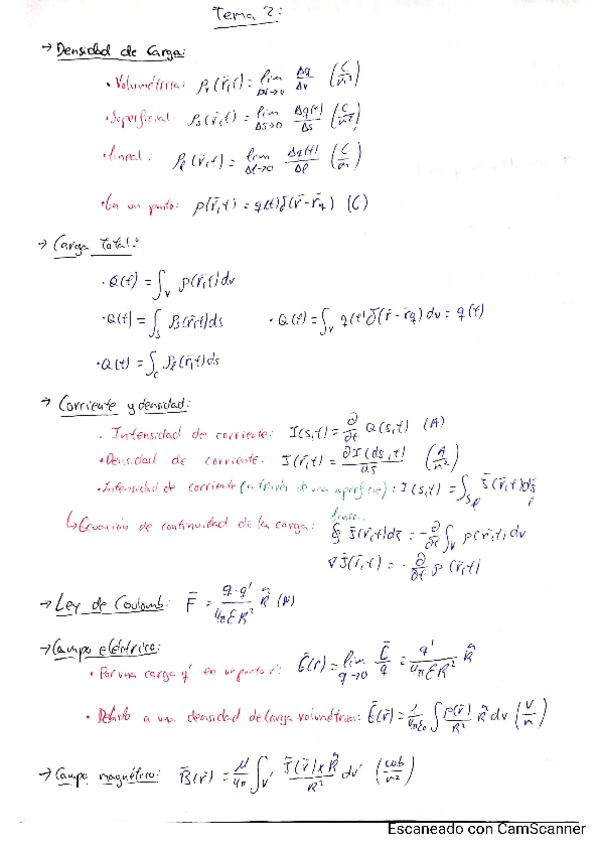 Tema 2:
→ Densidad de Carga:
• Volumétrica: ρv(r̄,t) = lim Δv→0 Δq/Δv (C/m³)
• Superficial: ρs(r̄,t) = lim Δs→0 Δq(t)/Δs (C/m²)
• Lineal: ρℓ(r̄,t) = lim Δℓ→0 Δq(t)/Δℓ (C/m)
• En un punto: ρ(r̄,t) = q(t)δ(r̄ - r̄q) (C)
→ Carga Total:
• Q(t) = ∫v ρ(r̄,t) dv
• Q(t) = ∫s ρs(r̄,t) ds • Q(t) = ∫v q(t) δ(r̄ - r̄q) dv = q(t)
• Q(t) = ∫c ρℓ(r̄,t) ds
→ Corriente y densidad:
• Intensidad de corriente: I(s,t) = ∂/∂t Q(s,t) (A)
• Densidad de corriente: J(r̄,t) = ∂I(ds,t)/∂s (A/m²)
• Intensidad de corriente (a través de una superficie): I(s,t) = ∫s J̄(r̄,t) ds̄
línea ℓ
↳ Ecuación de continuidad de la carga: ∮s J̄(r̄,t) ds̄ = - ∂/∂t ∫v ρ(r̄,t) dv
∇ J̄(r̄,t) = - ∂/∂t ρ(r̄,t)
→ Ley de Coulomb: F̄ = q·q'/4πεR² R̂ (N)
→ Campo eléctrico:
• Por una carga q' en un punto r: Ē(r) = lim q→0 F̄/q = q'/4πεR² R̂
• Debido a una densidad de carga volumétrica: Ē(r̄) = 1/4πε₀ ∫ ρ(r̄)/R² R̂ dv (V/m)
→ Campo magnético: B̄(r̄) = μ/4π ∫v' J̄(r̄) x R̂/R² dv' (wb/m²)
Escaneado con CamScanner